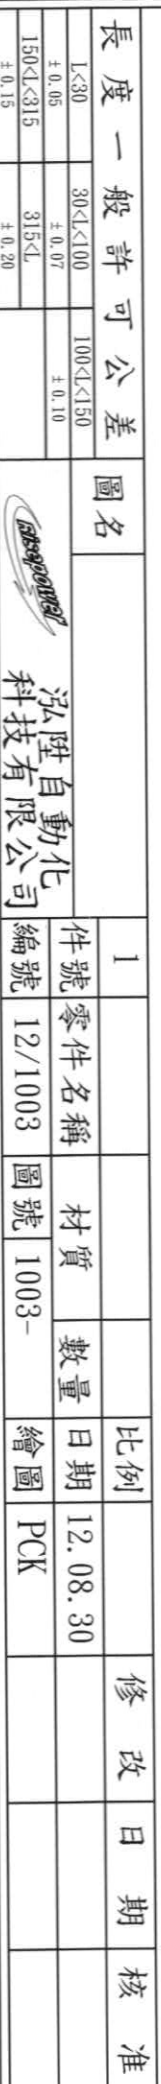 長度一般許可公差
L<30 30<L<100 100<L<150
±0.05 ±0.07 ±0.10
150<L<315 315<L
±0.15 ±0.20
圖名
泓陞自動化
科技有限公司
1
件號 零件名稱 材質 數量
編號 12/1003 圖號 1003-
比例
日期 12.08.30
繪圖 PCK
修改 日期 核准